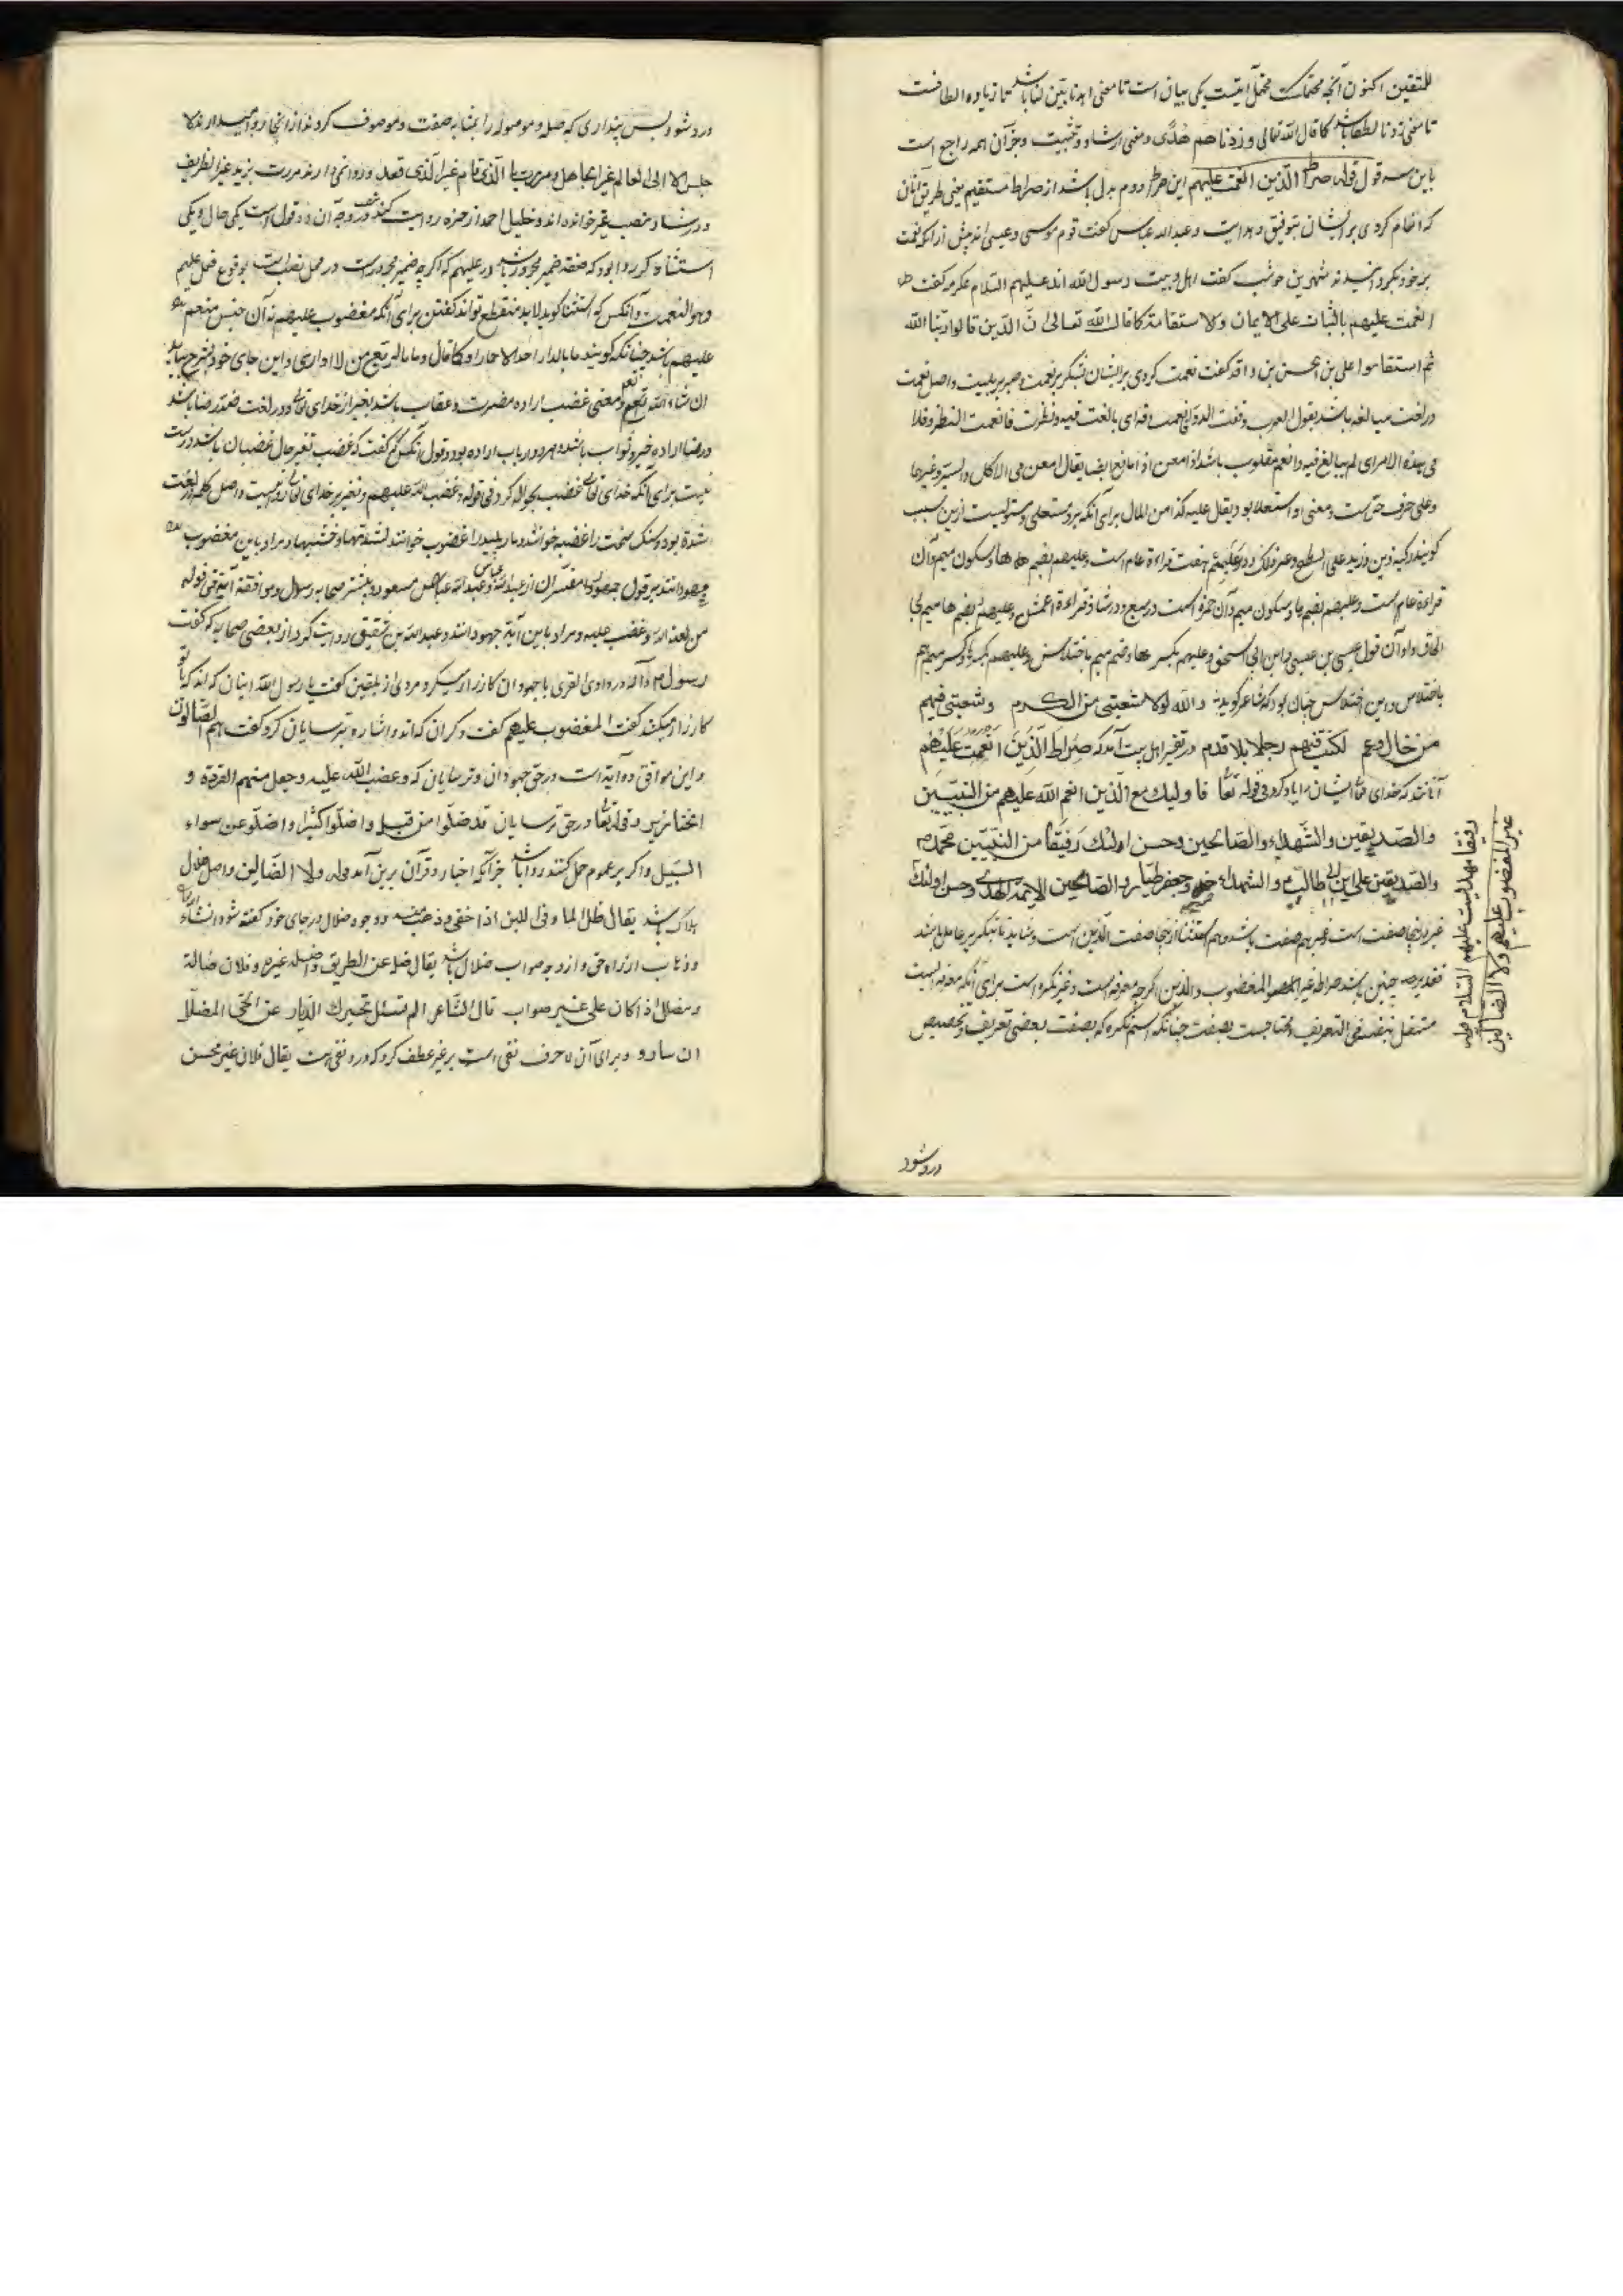 للمتقین اکنون آنچه محتملست محتمل آیتست یکی بیان است تا معنی اهدنا بیّن لنا باشد تا زیاده الطافست
تا معنی زدنا لطفا باشد کما قال الله تعالی وزدناهم هدًی ومعنی ارشاد و تثبیت وجز آن همه راجع است
باین سه قول قوله صراط الّذین انعمت علیهم این صراط دوم بدل باشد از صراط مستقیم یعنی طریق آنان
که انعام کردی بر ایشان بتوفیق و هدایت و عبدالله عباس گفت قوم موسی و عیسی اند پیش از آنکه نعمت
بر خود بگردانیدند شهر بن حوشب گفت اهل و بیت رسول الله اند علیهم السّلام عکرمه گفت
انعمت علیهم بالثبات علی الایمان والاستقامة کما قال الله تعالی انّ الّذین قالوا ربّنا الله
ثم استقاموا علی بن الحسن بن واقد گفت نعمت کردی بر ایشان بشکر بر نعمت و صبر بر بلیت و اصل نعمت
در لغت مبالغه باشد یقول العرب دققت الدوا فانعمت دقه ای بالغت فیه ونظرت فانعمت النظر وفلان
فی هذه الامر ای لم یبالغ فیه وانعم مقلوب باشد از امعن اذ امانع ایضا یقال امعن فی الاکل والسیر وغیرها
وعلی حرف جر است و معنی او استعلا بود یقال علیه کذا من المال برای آنکه برو مستعلی و مستولیست ازین سبب
گویند رکبه دین وزید علی السطح و عمرو کذلک و در علیهم هفت قراءة عام است وعلیهم بضم هاء وسکون میم وآن
قراءة عام است وعلیهم بضم ها و سکون میم وآن حمزه است در سبع و در شاذ قراءة اعمش وعلیهم بضم ها میم با
الحاق واو آن قول عیسی بن عیسی وابن ابی اسحق وعلیهم بکسر ها وضم میم باختلاس وعلیهم بکسر ها وکسر میم هم
باختلاس و این اختلاس چنان بود که شاعر گوید والله لولا شعبتی من الکرم وشعبتی فیهم
من خال وعم لکنت فیهم رجلا بلا قدم و در تفسیر اهل بیت آمد که صراط الّذین انعمت علیهم
آنانند که خدای تعالی ایشان را یاد کرد فی قوله تعا فاولیک مع الّذین انعم الله علیهم من النبیّین
والصّدیقین والشّهداء والصّالحین وحسن اولئک رفیقًا من النبیّین محمّد
والصّدیقین علی ابن ابی طالب والشهداء حمزه وجعفر طیّار والصّالحین الائمة الهدی وحسن اولئک
رفیقا مهدایت علیهم السّلام قوله
غیر المغضوب علیهم ولا الضالّین
غیر اینجا صفت است غیر بهم صفت باشد وهم استثنا از اینجا صفت الّذین است
تقدیر چنین باشد صراط غیر المغضوب والّذین اگرچه معرفه است وغیر نکره است برای آنکه معرفه نیست
مستقل بنفسه فی التعریف ومحتاجست بصفت چنانکه اسم نکره که بصفت بعضی تعریف و تخصیص
درو شود
درو شود پس پنداری که صله و موصوله را بمثابه صفت و موصوف کردند از اینجا روا میدارند لا
جلس الا الی العالم غیر الجاهل ومررت بالّذی قام غیر الّذی قعد وروا نمی دارند مررت بزید غیر الظریف
و در شاذ بنصب غیر خوانده اند و خلیل احمد از حمزه روایت کند نصب و در وجه آن دو قول است یکی حال و یکی
استثناء گر روا بود که صفت ضمیر مجرور باشد در علیهم که اگرچه ضمیر مجرور است در محل نصب است بوقوع فعل علیهم
وهو النعمت وآنکس که استثنا گوید لابد منقطع تواند گفتن برای آنکه مغضوب علیهم نه آن جنس منعم
علیهم باشد چنانکه گویند ما بالدار احد الا حمارا وکما قال وما بالربع من احد الا اواری و این جای خود بشرح بیاید
ان شاء الله تعالی ومعنی غضب اراده مضرت و عقاب باشد بغیر از خدای تعالی و در لغت ضد رضا باشد
و رضا اراده خیر و ثواب باشد و هر دو از باب اراده بود و قول آنکس که گفت که غضب تغیر حال غضبان باشد درست
نیست برای آنکه خدای تعالی غضب بحواله کرد فی قوله وغضب الله علیهم وتغیر بر خدای تعالی روا نیست و اصل کلمه از لغت
شدة بود و سنگ سخت را غضبه خوانند و مار پلید را غضوب خوانند لشدتها وخشیتها و مراد باین مغضوب
جهودانند بر قول جمهور مفسّران از عبدالله عباس وعبدالله مسعود و بیشتر صحابه رسول و موافقه آیتی فی قوله
من لعنه الله وغضب علیه و مراد باین آیة جهودانند و عبدالله بن شقیق روایت کرد از بعضی صحابه که گفت
رسول و آله در وادی القری با جهودان کارزار میکرد مردی از بلقین گفت یا رسول الله اینان که اند که با تو
کارزار میکنند گفت المغضوب علیهم گفت دگران که اند و اشاره بترسایان کرد گفت هم الضّالّون
و این موافق دو آیة است در حق جهودان و ترسایان که وغضب الله علیه وجعل منهم القردة و
الخنازیر و قوله تعا در حق ترسایان قد ضلّوا من قبل واضلّوا کثیرا واضلّوا عن سواء
السّبیل و اگر بر عموم حمل کنند روا باشد جز آنکه اخبار و قرآن برین آمد قوله ولا الضّالین و اصل ضلال
هلاک باشد یقال ضل الماء فی اللبن اذا خفی وذهب و وجوه ضلال در جای خود گفته شود انشاء الله
و ذهاب از راه حق و از وجه صواب ضلال باشد یقال ضل عن الطریق واضله غیره وفلان ضالة
وضلال اذا کان علی غیر صواب قال الشّاعر الم تسئل تخبرک الدّیار عن الحیّ المضلّل
این ساروا و برای آن لا حرف نفی است بر غیر عطف کرد که در و نفی است یقال فلان غیر محسن